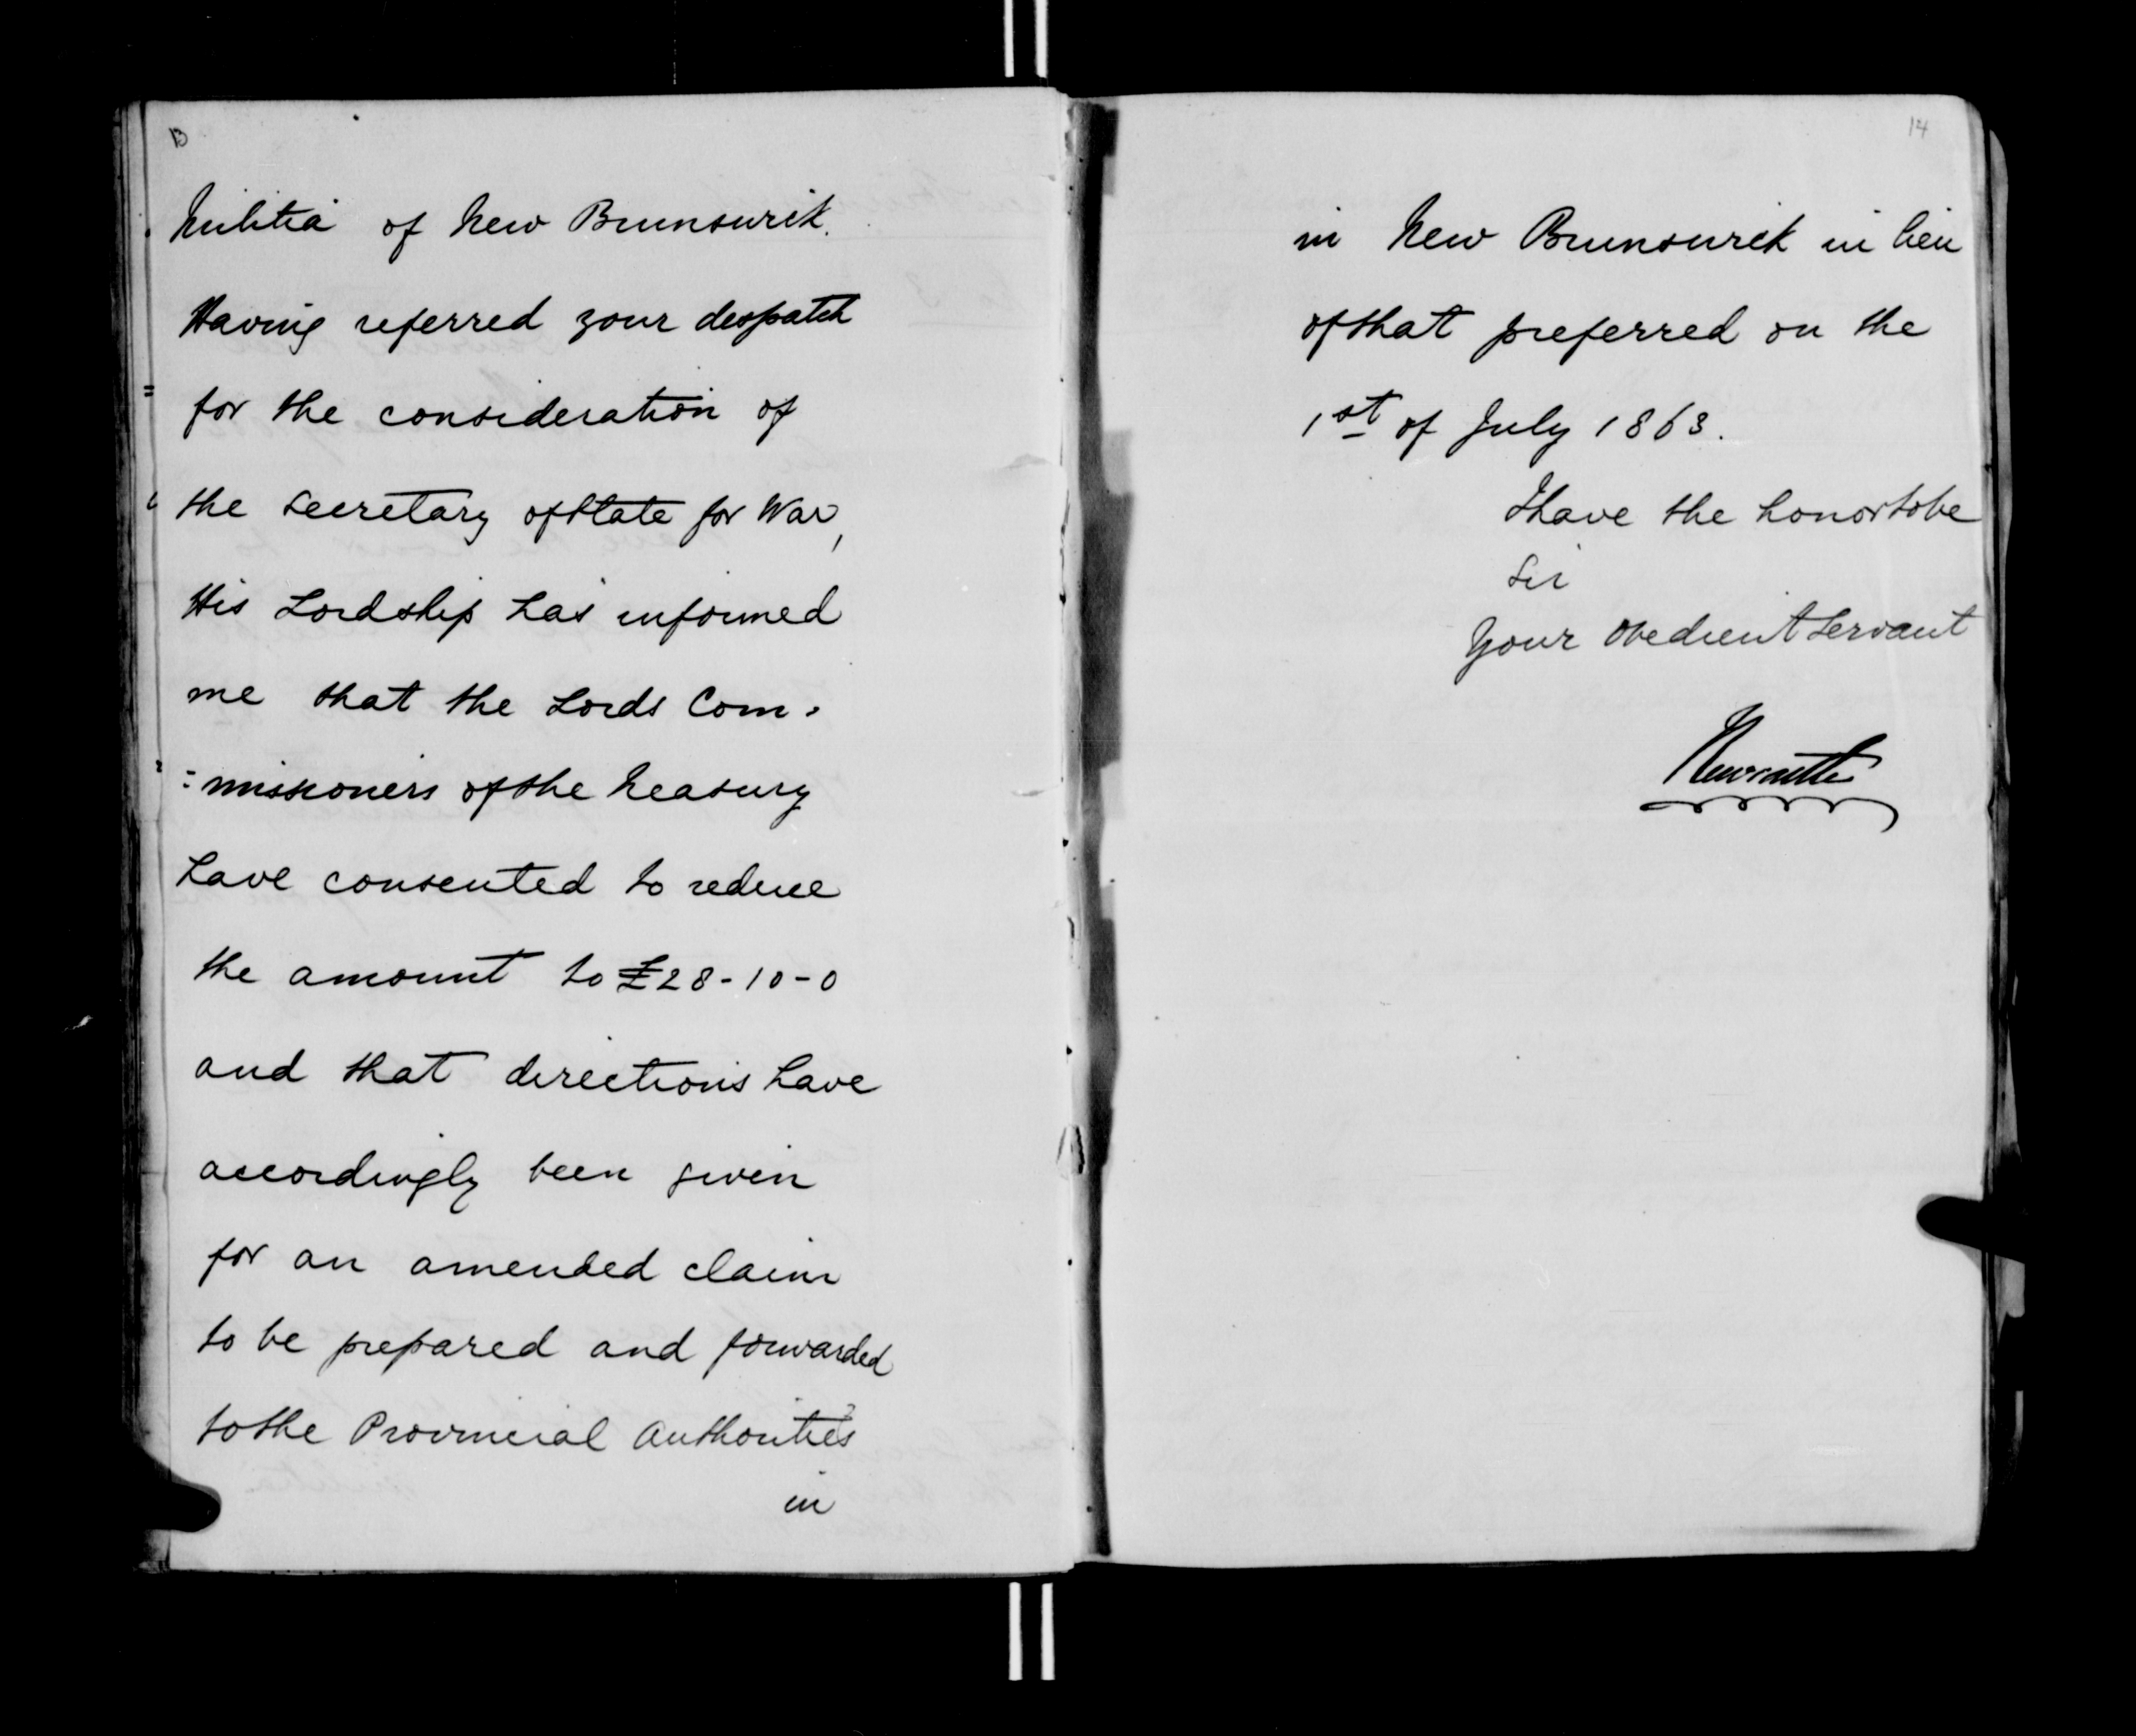 13
Militia of New Brunswick.
Having referred your despatch
for the consideration of
the Secretary of State for War,
His Lordship has informed
me that the Lords Com-
:missioners of the Treasury
have consented to reduce
the amount to £28-10-0
and that directions have
accordingly been given
for an amended claim
to be prepared and forwarded
to the Provincial Authorities
in
14
in New Brunswick in lieu
of that preferred on the
1st of July 1863.
I have the honor to be
Sir
Your Obedient Servant
Newcastle